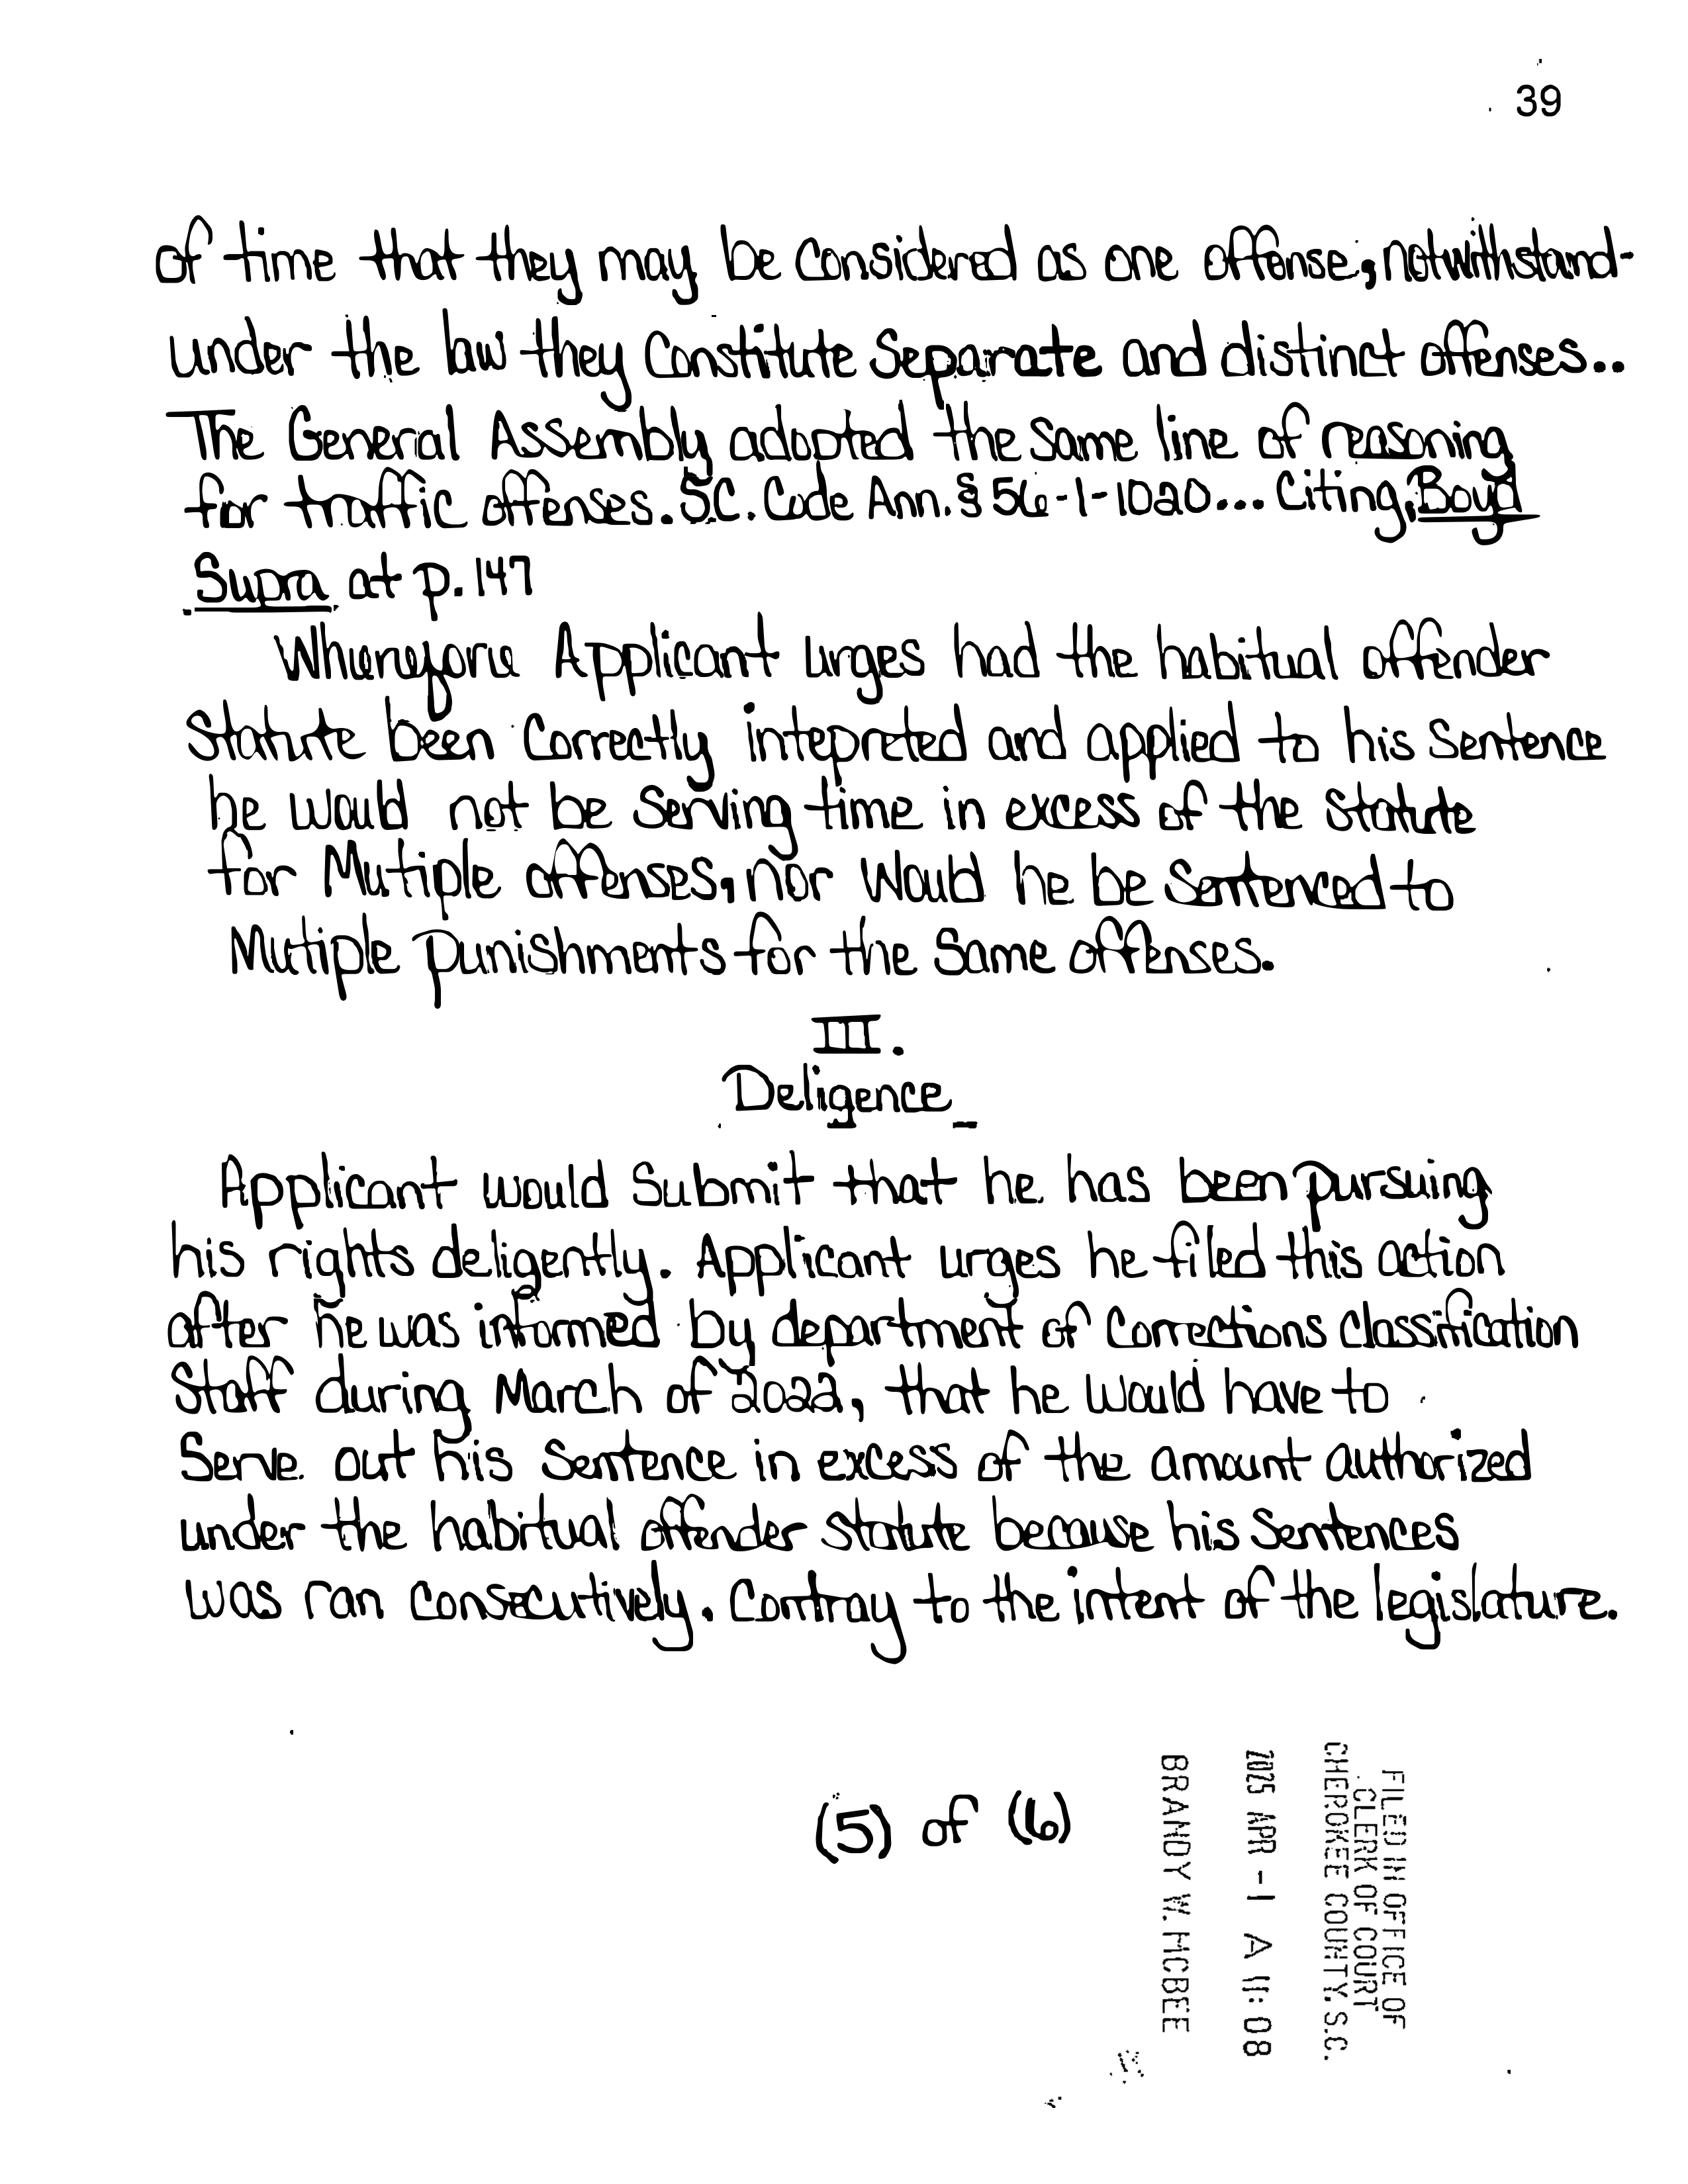 39
of time that they may be considered as one offense, notwithstand-
under the law they Constitute Separate and distinct offenses..
The General Assembly adopted the same line of reasoning
for traffic offenses. S.C. Code Ann. § 56-1-1020... Citing, Boyd
Supra at p. 147
Wherefore Applicant urges had the habitual offender
Statute been Correctly intepreted and applied to his Sentence
he would not be Serving time in excess of the Statute
for Mutiple offenses, nor Would he be Sentenced to
Mutiple Punishments for the Same offenses.
III.
Deligence
Applicant would Submit that he has been pursuing
his rights deligently. Applicant urges he filed this action
after he was informed by department of Corrections Classification
Staff during March of 2022, that he would have to
Serve out his Sentence in excess of the amount authorized
under the habitual offender Statute because his Sentences
was ran Consecutively. Contray to the intent of the legislature.
(5) of (6)
FILED IN OFFICE OF
CLERK OF COURT
CHEROKEE COUNTY, S.C.
2025 APR -1 A 11: 08
BRANDY W. MCBEE